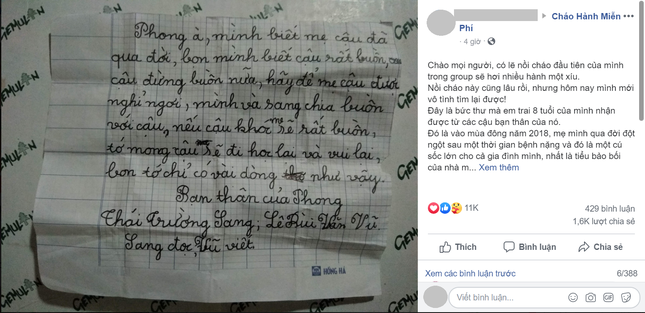 Phong à, mình biết mẹ cậu đã
qua đời, bọn mình biết cậu rất buồn,
cậu đừng buồn nữa, hãy để mẹ cậu được
nghỉ ngơi, mình và sang chia buồn
với cậu, nếu cậu khóc mẹ sẽ rất buồn,
tớ mong cậu sẽ đi học lại và vui lại,
bọn tớ chỉ có vài dòng như vậy.
Bạn thân của Phong
Thái Trương Sang, Lê Bùi Văn Vũ.
Sang đọc, Vũ viết.
HỒNG HÀ
GEMULAN
GEMULAN
GEMULAN
GEMULAN
Cháo Hành Miễn
Phí
4 giờ
Chào mọi người, có lẽ nồi cháo đầu tiên của mình
trong group sẽ hơi nhiều hành một xíu.
Nồi cháo này cũng lâu rồi, nhưng hôm nay mình mới
vô tình tìm lại được!
Đây là bức thư mà em trai 8 tuổi của mình nhận
được từ các cậu bạn thân của nó.
Đó là vào mùa đông năm 2018, mẹ mình qua đời đột
ngột sau một thời gian bệnh nặng và đó là một cú
sốc lớn cho cả gia đình mình, nhất là tiểu bảo bối
của nhà m... Xem thêm
11K
429 bình luận
1,6K lượt chia sẻ
Thích Bình luận Chia sẻ
Xem các bình luận trước 6/388
Viết bình luận...
GIF